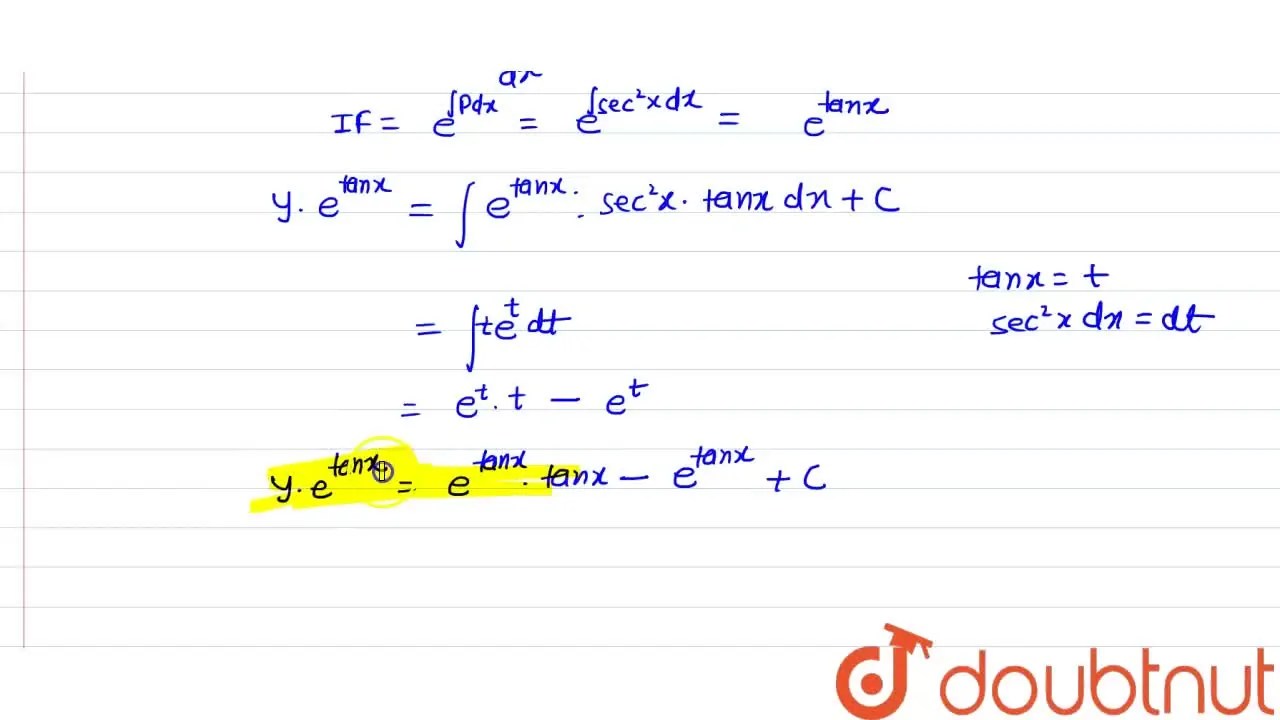 dx
IF = e^∫Pdx = e^∫sec²x dx = e^tanx
y. e^tanx = ∫ e^tanx . sec²x. tanx dx + C
tanx = t
sec²x dx = dt
= ∫te^t dt
= e^t. t - e^t
y. e^tanx = e^tanx . tanx - e^tanx + C
doubtnut